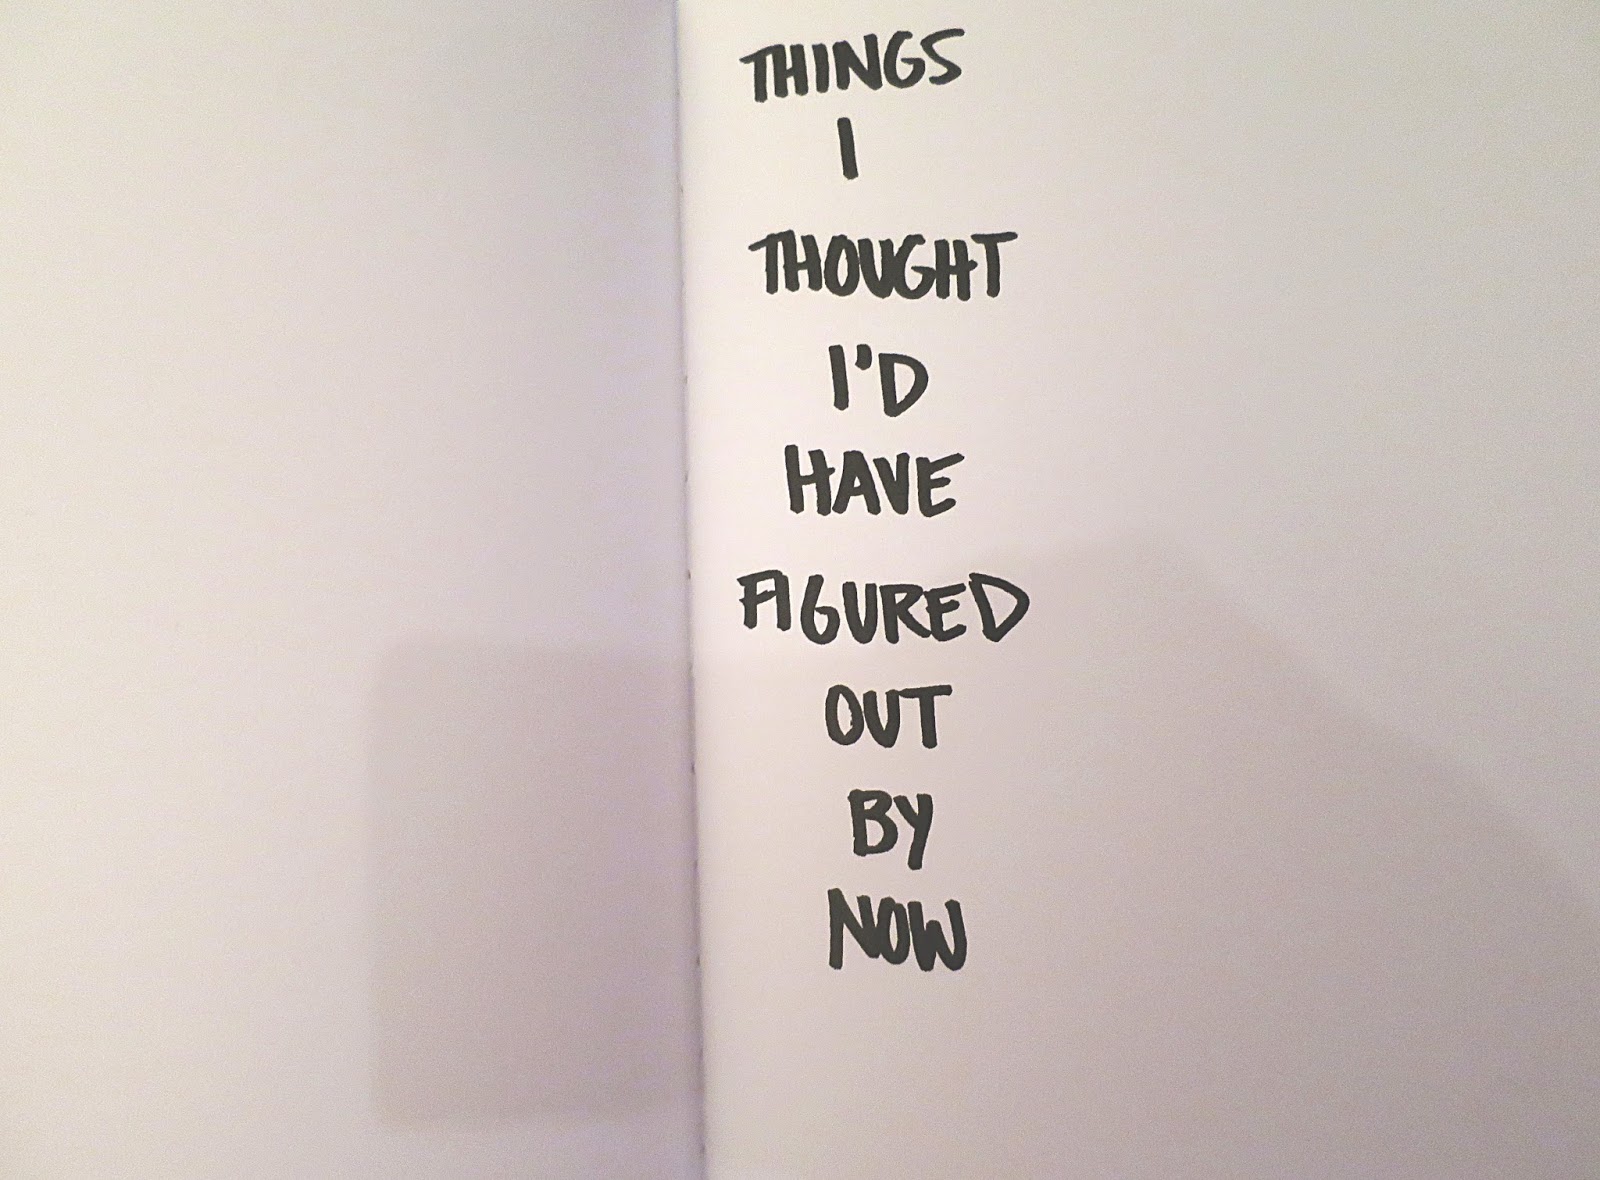 THINGS
I
THOUGHT
I'D
HAVE
FIGURED
OUT
BY
NOW